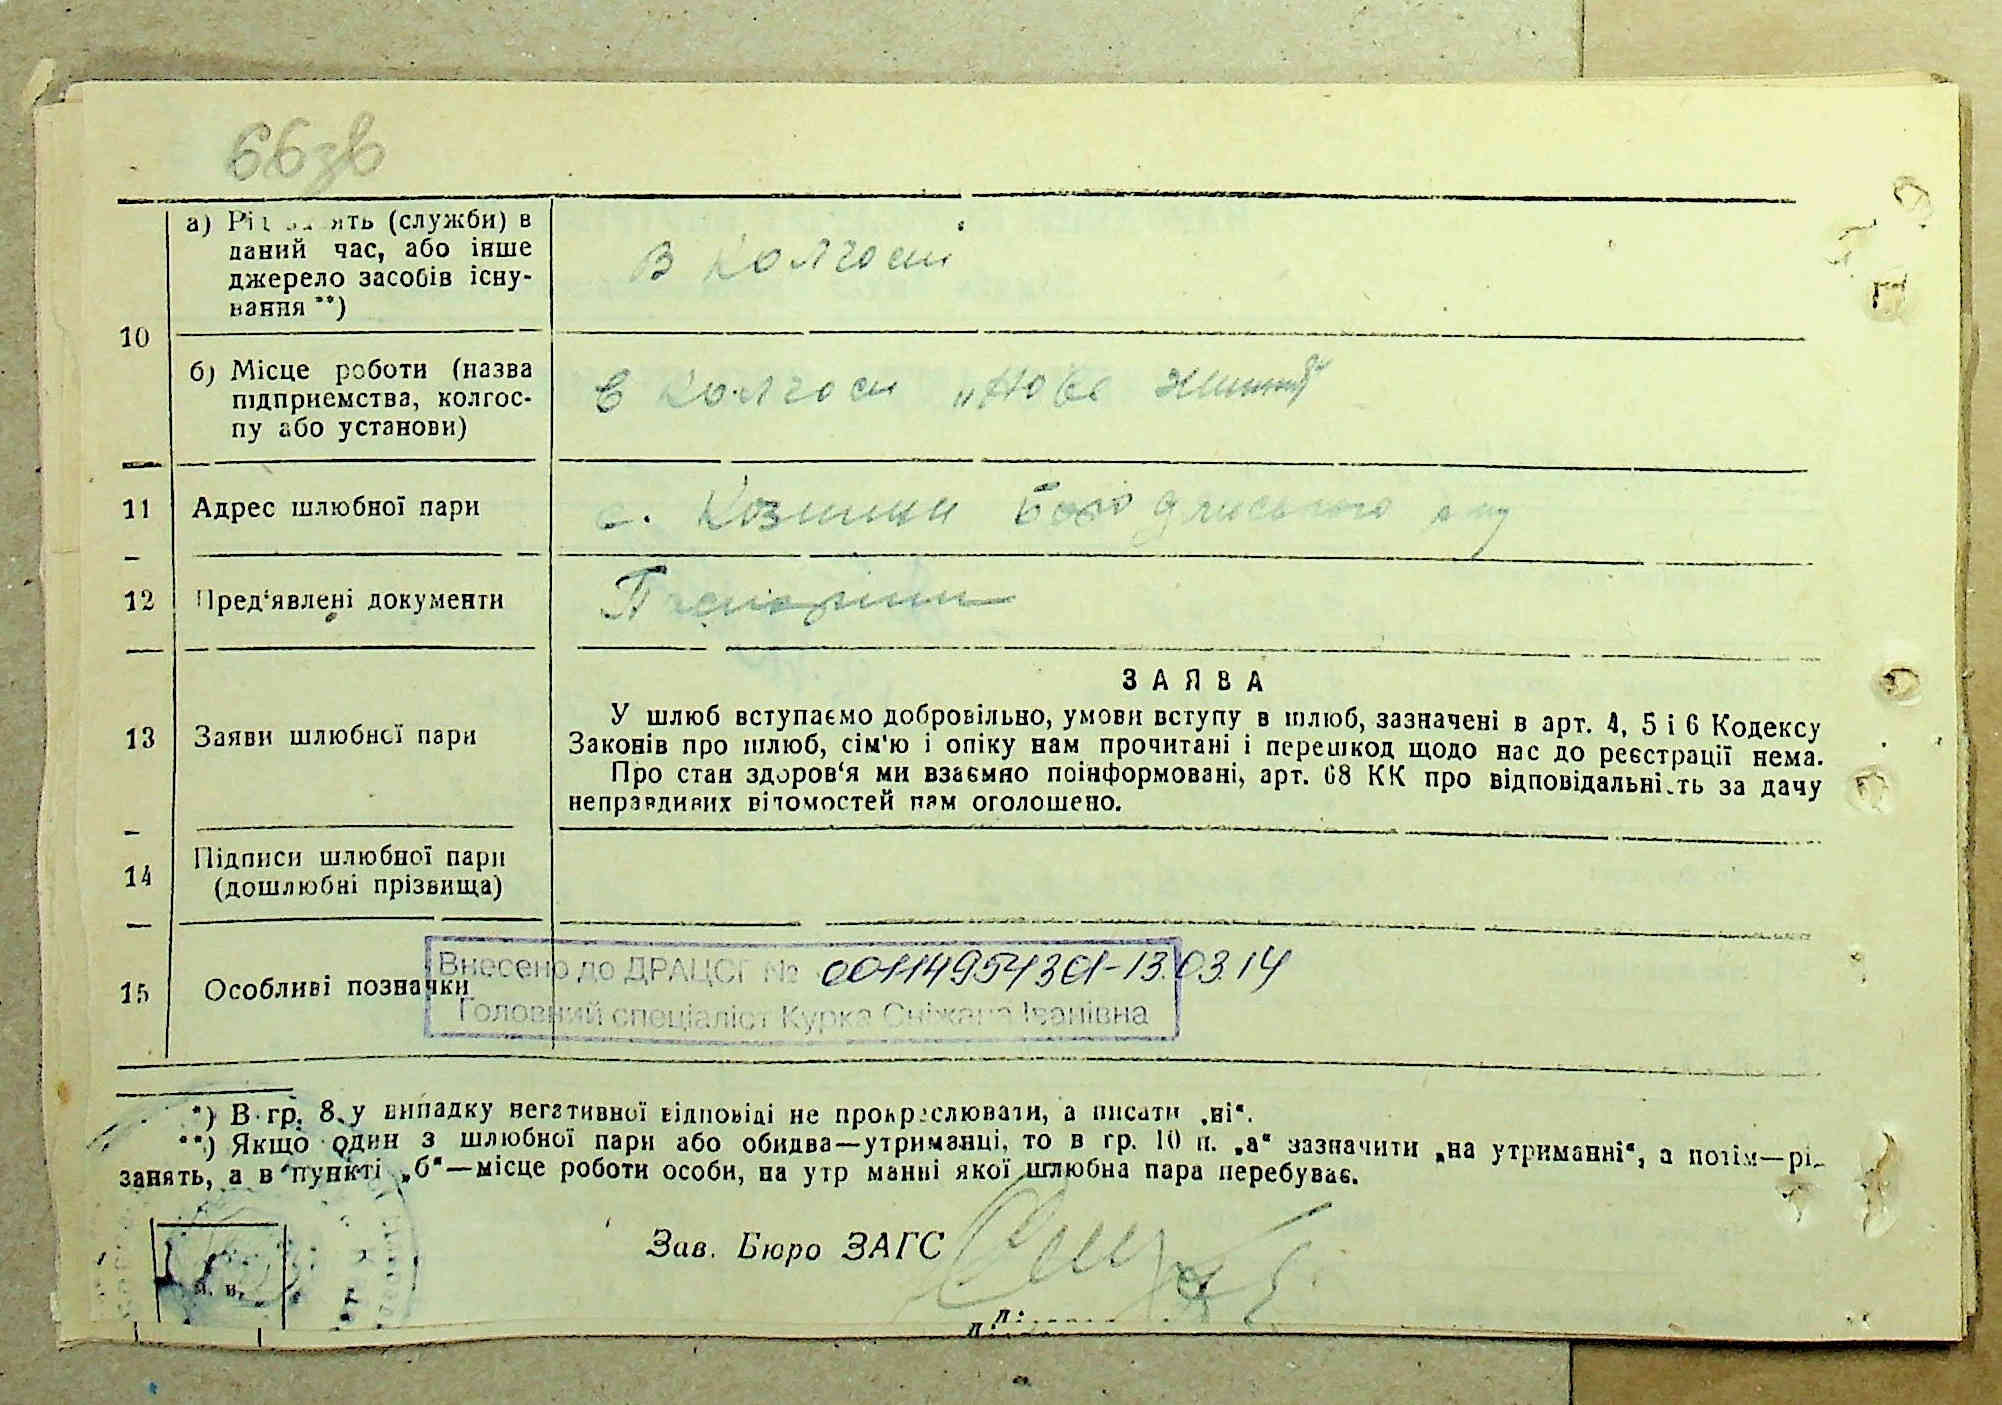 66зв
а) Рід занять (служби) в
даний час, або інше
джерело засобів існу-
вання **)
В колгоспі
10
б) Місце роботи (назва
підприємства, колгос-
пу або установи)
в колгосп „Нове життя"
11 Адрес шлюбної пари
с.
12 Пред'явлені документи
Паспорти
ЗАЯВА
13 Заяви шлюбної пари
У шлюб вступаємо добровільно, умови вступу в шлюб, зазначені в арт. 4, 5 і 6 Кодексу
Законів про шлюб, сім'ю і опіку нам прочитані і перешкод щодо нас до реєстрації нема.
Про стан здоров'я ми взаємно поінформовані, арт. 68 КК про відповідальність за дачу
неправдивих відомостей нам оголошено.
14 Підписи шлюбної пари
(дошлюбні прізвища)
15 Особливі позначки
Внесено до ДРАЦСГ № 00114954301-13.03.14
Головний спеціаліст Курка Сніжана Іванівна
*) В гр. 8 у випадку негативної відповіді не прокреслювати, а писати „ні“.
**) Якщо один з шлюбної пари або обидва—утриманці, то в гр. 10 п. „а“ зазначити „на утриманні“, а потім—рід
занять, а в пункті „б“—місце роботи особи, на утриманні якої шлюбна пара перебуває.
Зав. Бюро ЗАГС